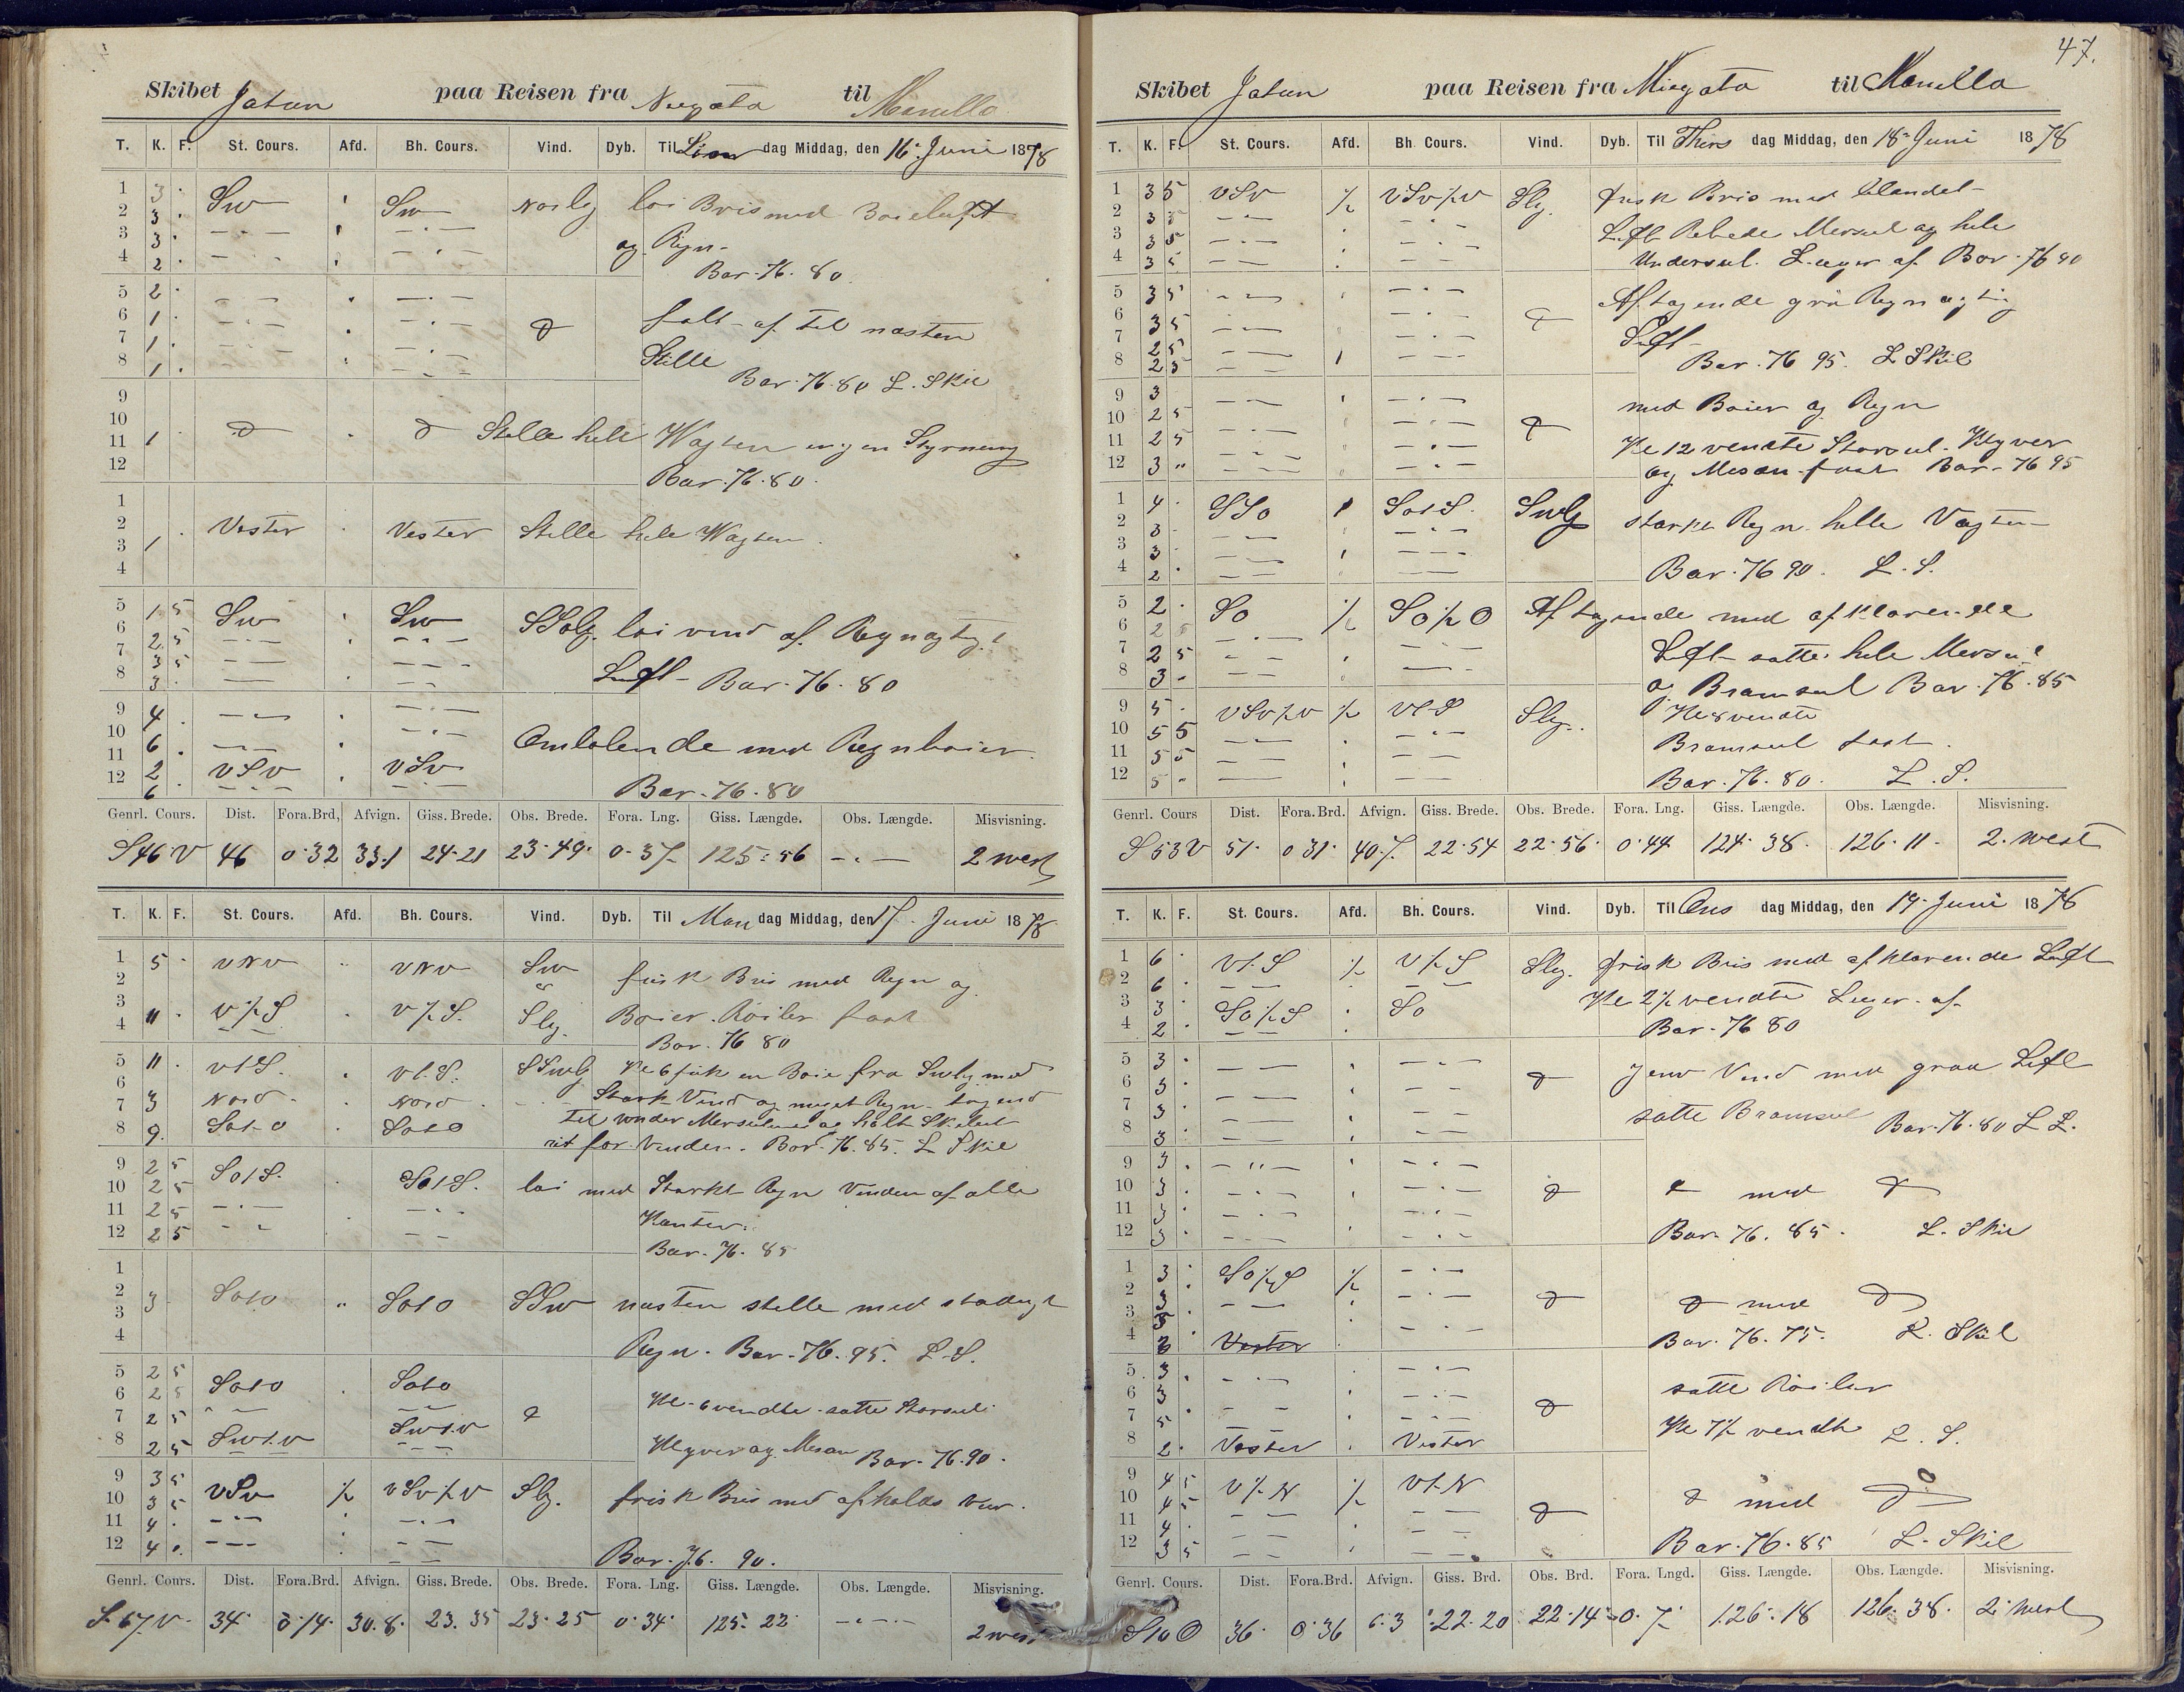 Skibet Jatun paa Reisen fra Niegata til Manilla
T. K. F. St. Cours. Afd. Bh. Cours. Vind. Dyb. Til Søn dag Middag, den 16. Juni 1878
1 3 . Sw Sw Norlig lai Bris med Boieluft
2 3 .
3 3 . og Regn -
4 2 . Bar. 76. 80.
5 2 .
6 1 . falt af til næsten
7 1 . Stille
8 1 . Bar. 76. 80 L. Skil
9
10
11 1 Stille hele Wagten ingen Styrning
12 Bar. 76. 80.
1
2 Vester Vester Stille hele Wagten
3 1
4
5 1 5 Sw Sw SSolg. lai vind af Regnagtigt
6 2 5
7 3 5 Luft - Bar. 76. 80
8 3 .
9 4 .
10 6 . Omlølende med Regnboier.
11 2 . VSv VSv
12 6 . Bar. 76. 80
Genrl. Cours. Dist. Fora.Brd, Afvign. Giss. Brede. Obs. Brede. Fora. Lng. Giss. Længde. Obs. Længde. Misvisning.
S46V 46 0.32 33.1 24.21 23.49. 0.37 125.56 - . - 2 west
T. K. F. St. Cours. Afd. Bh. Cours. Vind. Dyb. Til Man dag Middag, den 17. Juni 1878
1 5 . VNV VNV Sw frisk Bris med Regn og
2
3 V 1/2 S V 1/2 S. Slg. Boier. Roiler fast
4 11 . Bar. 76 80
5 11 . VtS. VtS. SSwlg Kl 6 fik en Boie fra Swlig med
6 Stærk Vind og meget Regn
7 3 Nord Nord til under Mersulene og holt Skibet
8 9. SotO SotO ret for Vinden. Bar. 76. 85. L Skil
9 2 5 SotS. SotS. lai med Stærkt Regn Vinden af alle
10 2 5
11 2 5 Kanter.
12 2 5 Bar. 76. 85
1
2 3 SotO SotO SSw næsten stille med stadigt
3
4 Regn. Bar. 76. 95. L. S.
5 2 5 SotO SotO
6 2 5 Kl. 6 vendte satte Storsul
7 2 5 Swt.v Swt.v
8 2 5 Klyver og Mesan Bar. 76. 90.
9 3 5 VSv 1/2 VSv 1/2 V Slg. frisk Bris med afholds Veir.
10 3 5
11 4 .
12 4 . Bar. 76. 90.
Genrl. Cours. Dist. Fora.Brd. Afvign. Giss. Brede. Obs. Brede. Fora. Lng. Giss. Længde. Obs. Længde. Misvisning.
S. 67 V. 34. 0.14. 30.8. 23.35 23.25 0.34. 125.22 - . - 2 west
47.
Skibet Jatun paa Reisen fra Niegata til Manilla
T. K. F. St. Cours. Afd. Bh. Cours. Vind. Dyb. Til Thirs dag Middag, den 18. Juni 1878
1 3 5 VSv 1/2 VSv 1/2 V Slg. frisk Bris med blandet
2 3 5 Luft Rebede Mersul og hele
3 3 5
4 3 5 Undersul. L. af Bar. 76 90
5 3 5 Aftagende grå Regnagtig
6 3 5 Luft
7 2 5
8 2 5 Bar. 76 95. L Skil
9 3 med Boier og Regn
10 2 5
11 2 5 Kl 12 vendte Storsul. Klyver
12 3 " og Mesan fast Bar. 76 95
1 4 . SSo SotS. Swlg stærkt Regn helle Vagten
2 3 .
3 3
4 2 . Bar. 76 90. L. S.
5 2 . So 1/2 So 1/2 O Aftagende med afklarende
6 2 5 Luft satte hele Mersul
7 2 5
8 3 . og Bramsul Bar. 76. 85
9 5 . VSv 1/2 V 1/2 VtS Slg. Kl 8 vendte
10 5 5 Bramsul fast.
11 5 5
12 5 . Bar. 76. 80. L. S.
Genrl. Cours Dist. Fora.Brd. Afvign. Giss. Brede. Obs. Brede. Fora. Lng. Giss. Længde. Obs. Længde. Misvisning.
S 53 V 51. 0 31. 40.7. 22.54 22.56. 0.44 124.38. 126.11. 2. west
T. K. F. St. Cours. Afd. Bh. Cours. Vind. Dyb. Til Ons dag Middag, den 19. Juni 1878
1 6 . Vt.S 1/2 V 1/2 S Slg. frisk Bris med afklarende Luft
2 6 .
3 3 . So 1/2 S So Kl 2 1/2 vendte
4 2 . Bar. 76 80
5 3 . Jevn Vind med graa Luft
6 3 .
7 3 . satte Bramsul
8 3 . Bar. 76. 80 L L.
9 3 .
10 3 . med
11 3 .
12 3 . Bar. 76. 85. L. Skil
1 3 . So 1/2 S 1/2
2 3 . med
3 3 .
4 3 . Vester Bar. 76. 75. L. Skil
5 3 . satte Roiler
6 3
7 5 . Kl 7 1/2 vendte L. S.
8 2 . Vester Vester
9 4 5 V 1/2 N 1/2 Vt.N
10 4 5 med
11 4 .
12 3 5 Bar. 76. 85 L. Skil
Genrl. Cours. Dist. Fora.Brd. Afvign. Giss. Brd. Obs. Brd. Fora. Lngd. Giss. Længde. Obs. Længde. Misvisning.
S 10 O 36. 0.36 6.3 22.20 22.14 0.7. 126.18 126.38. 2. west